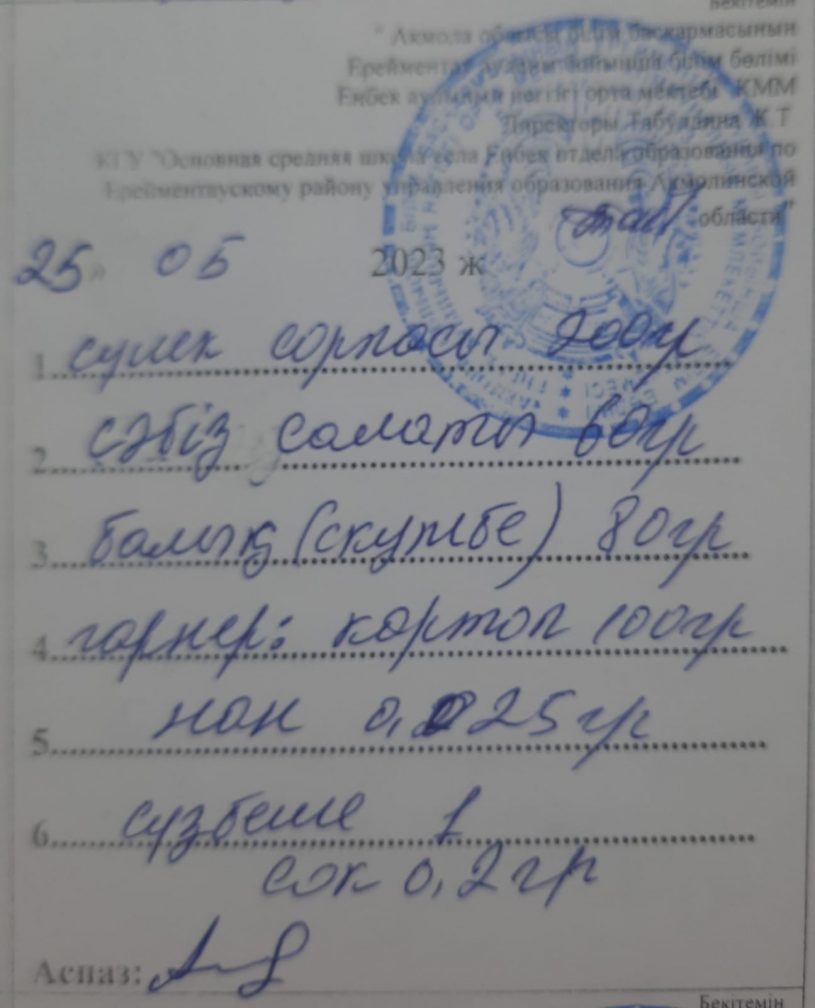 Бекітемін
" Ақмола облысы білім басқармасының
Ерейментау ауданы бойынша білім бөлімі
Еңбек ауылының негізгі орта мектебі" КММ
Директоры Табулдина Ж.Т
КГУ "Основная средняя школа села Еңбек отдела образования по
Ерейментаускому району управления образования Акмолинской
области"
25» 05 2023 ж
1. сүлек сорпасы 200гр
2. сәбіз салаты 60гр
3. балық (скумбе) 80гр
4. гарнер: картоп 100гр
5. нан 0,025гр
6. сүзбеше 1
сок 0,2гр
Аспаз:
Бекітемін